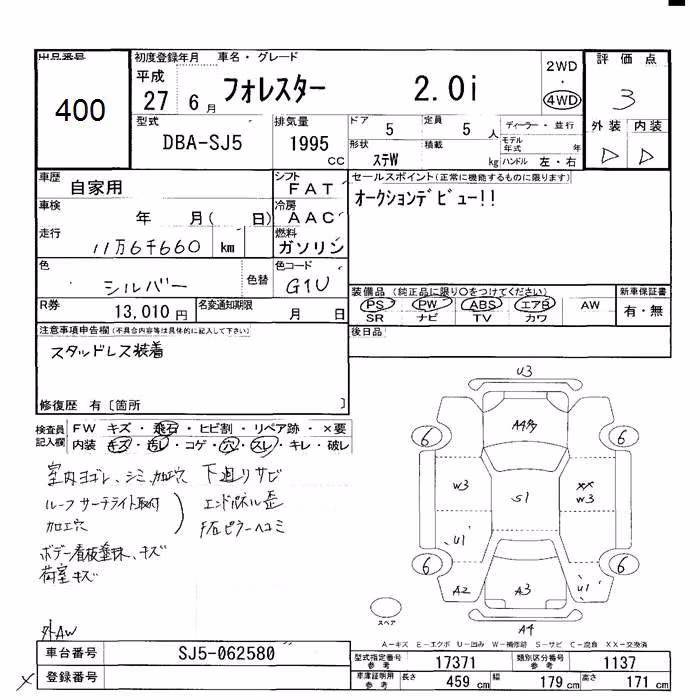 出品番号
400
初度登録年月 車名・グレード
平成 27 6月 フォレスター 2.0i
2WD ・ 4WD
評価点
3
外装 内装
D D
型式 DBA-SJ5
排気量 1995 cc
ドア 5 定員 5 人
ディーラー・並行
形状 ステW 積載 kg
モデル年式 年
ハンドル 左・右
車歴 自家用
シフト FAT
車検 年 月( 日)
冷房 AAC
走行 11万6千660 km
燃料 ガソリン
色 シルバー 色替
色コード G1U
R券 13,010円
名変通知期限 月 日
セールスポイント(正常に機能するものに限ります)
オークションデビュー!!
装備品 (純正品に限り○をつけてください)
PS PW ABS エアB AW
SR ナビ TV カワ
新車保証書
有・無
後日品
注意事項申告欄(不具合内容等は具体的に記入して下さい)
スタッドレス装着
修復歴 有〔箇所 〕
検査員記入欄
FW キズ・飛石・ヒビ割・リペア跡・×要
内装 キズ・汚レ・コゲ・穴・スレ・キレ・破レ
室内ヨゴレ、シミ、加工穴 下廻りサビ
ルーフ サーチライト取付
加工穴
エンドパネル歪
ボデー看板塗抹、キズ
荷室キズ
外AW
U3
A4多
6 6
W3 S1 XX W3
U1
6 6
A2 A3 U1
A4
スペア
A-キズ E-エクボ U-凹み W-補修跡 S-サビ C-腐食 XX-交換済
車台番号 SJ5-062580
登録番号
型式指定番号 参考 17371
類別区分番号 参考 1137
車庫証明用 参考 長さ 459 cm 幅 179 cm 高さ 171 cm